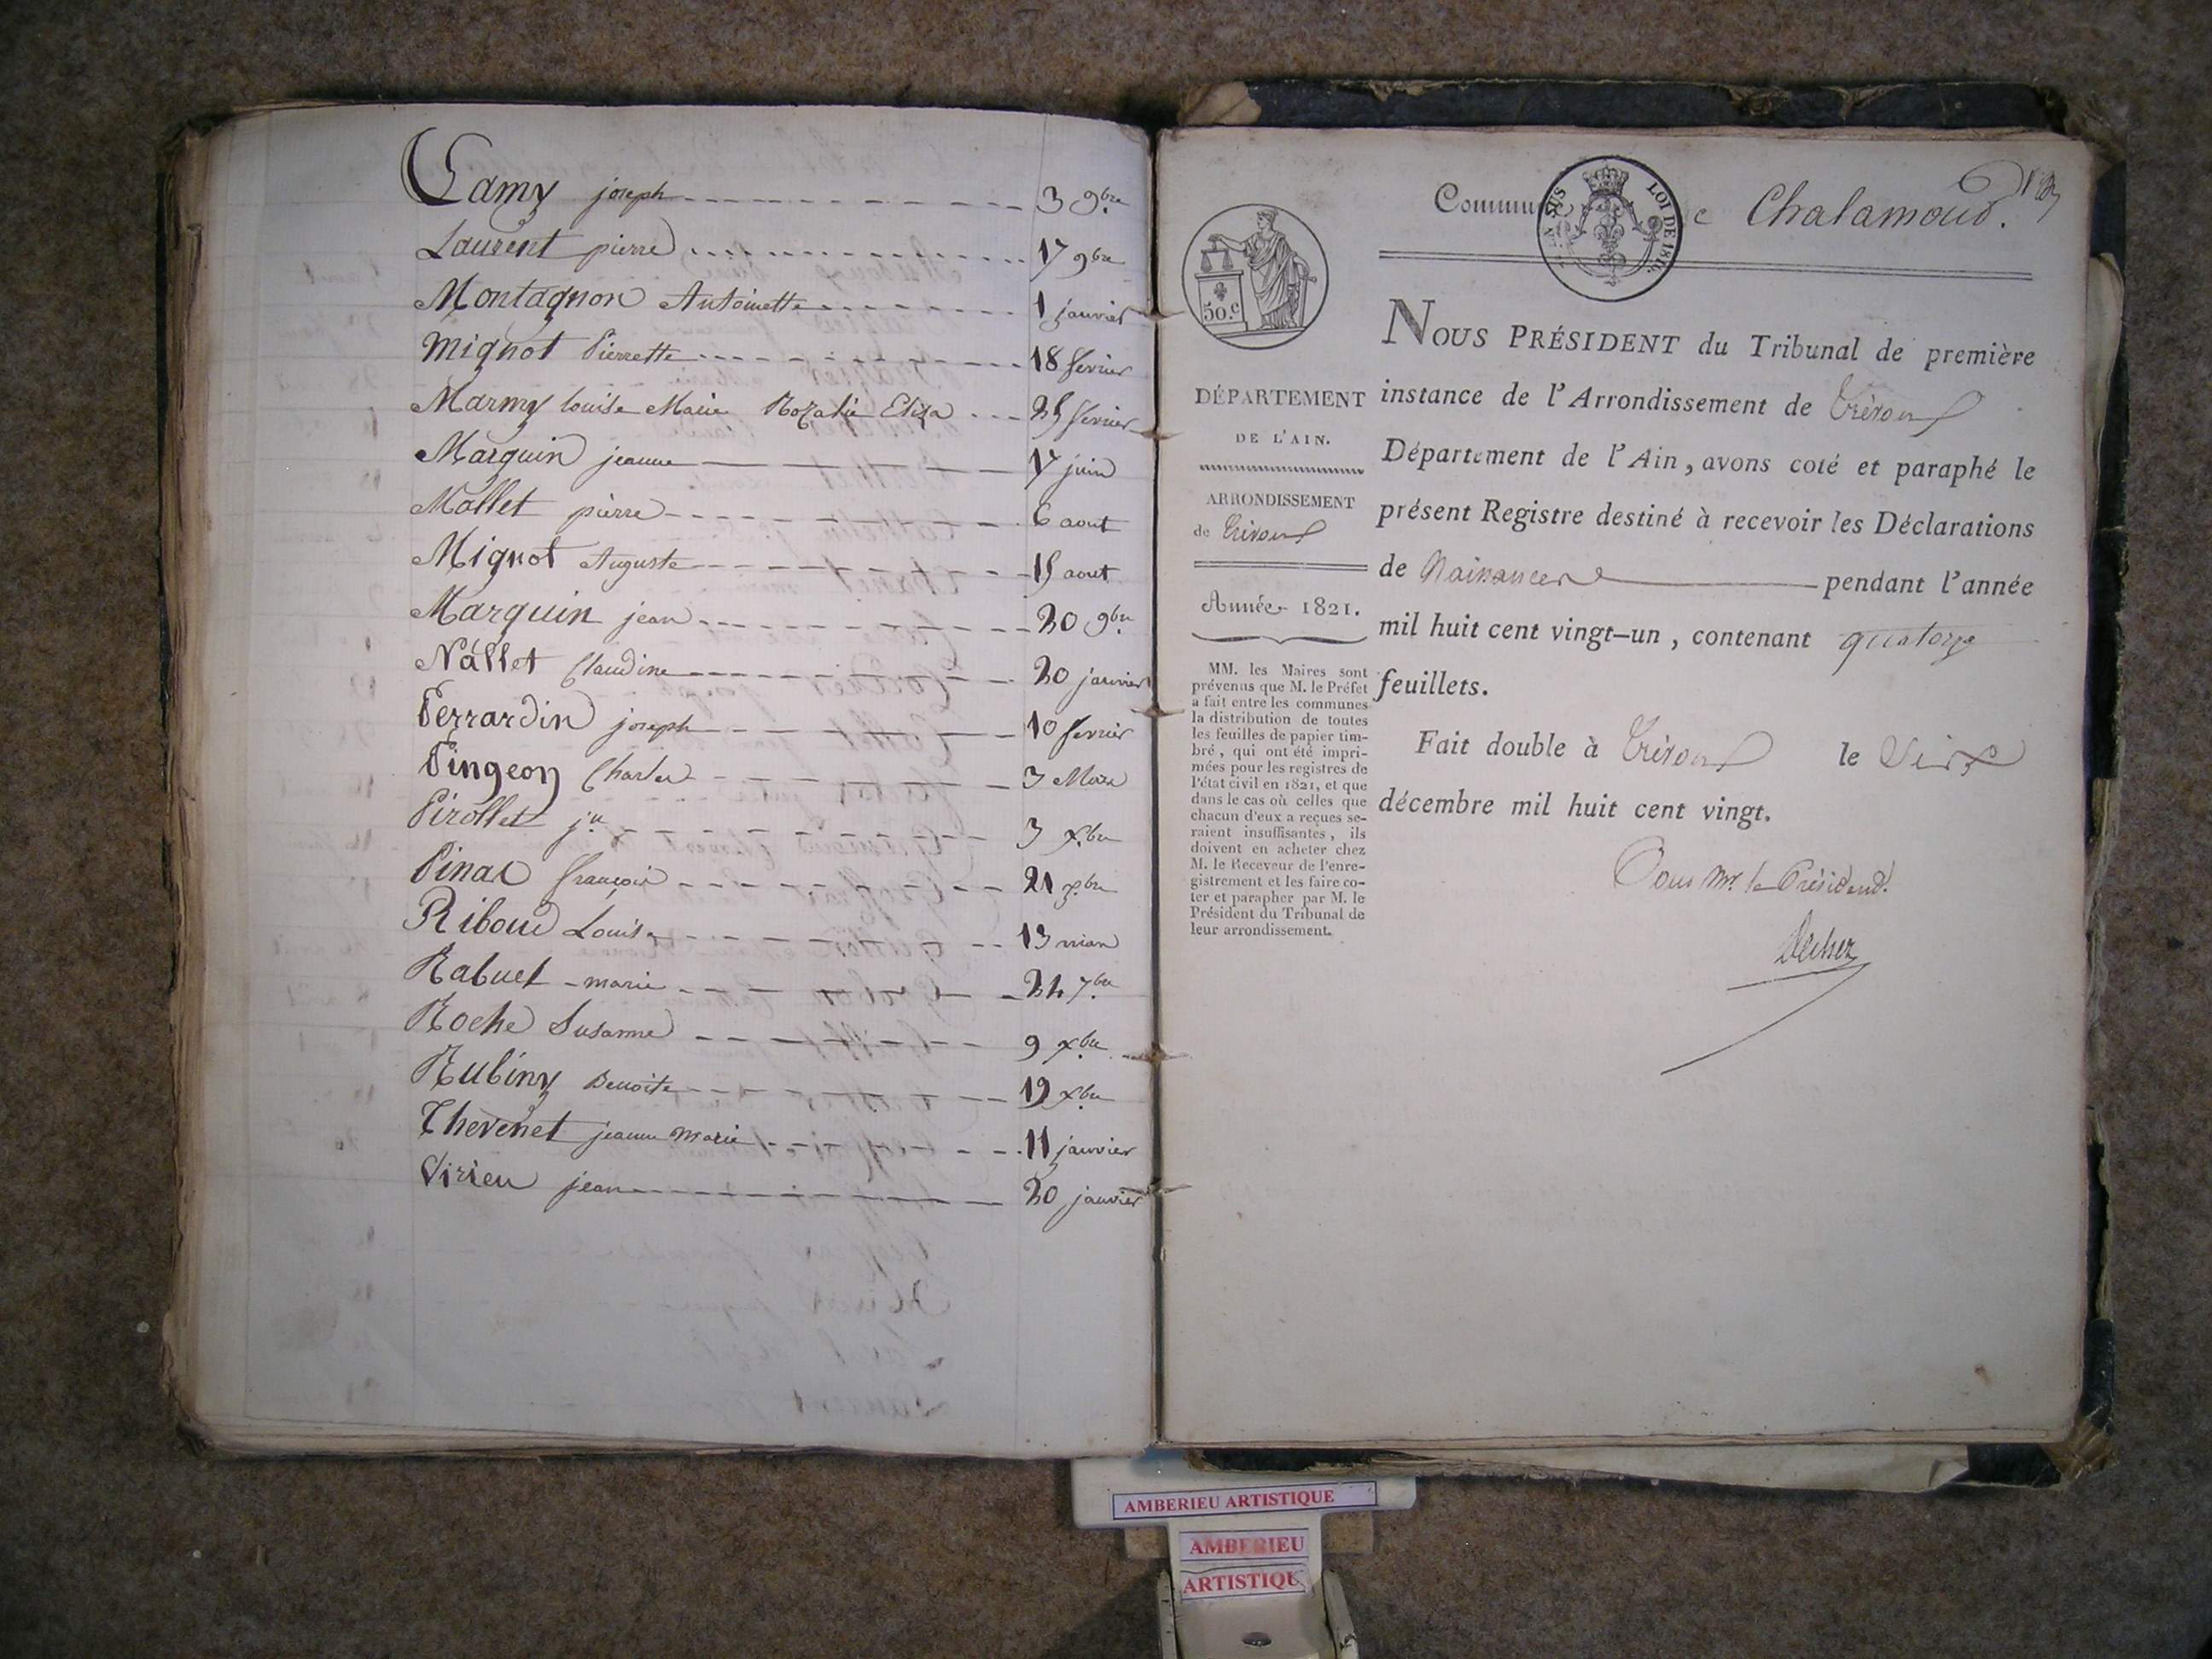 Lamy joseph 3 9bre
Laurent pierre 17 9bre
Montagnon Antoinette 1 janvier
Mignot Pierrette 18 fevrier
Marmy louise Marie Rozalie Eliza 25 fevrier
Marguin jeanne 17 juin
Mallet pierre 6 aout
Mignot Auguste 15 aout
Marguin jean 20 9bre
Nallet Claudine 20 janvier
Perrardin joseph 10 fevrier
Pingeon Charles 3 Mars
Pirollet 3 xbre
Pinac françois 21 xbre
Riboud Louise 13 mars
Rabuel marie 24 7bre
Roche Susanne 9 xbre
Rubiny Benoite 19 xbre
Thevenet jeanne Marie 11 janvier
Virieu jean 20 janvier
Commune Chalamont.
EN SUS LOI DE 1816.
50.c
DÉPARTEMENT
DE L'AIN.
ARRONDISSEMENT
de Trévoux
Année 1821.
MM. les Maires sont
prévenus que M. le Préfet
a fait entre les communes
la distribution de toutes
les feuilles de papier tim-
bré, qui ont été impri-
mées pour les registres de
l'état civil en 1821, et que
dans le cas où celles que
chacun d'eux a reçues se-
raient insuffisantes, ils
doivent en acheter chez
M. le Receveur de l'enre-
gistrement et les faire co-
ter et parapher par M. le
Président du Tribunal de
leur arrondissement.
NOUS PRÉSIDENT du Tribunal de première
instance de l'Arrondissement de Trévoux
Département de l'Ain, avons coté et paraphé le
présent Registre destiné à recevoir les Déclarations
de Naissances pendant l'année
mil huit cent vingt-un, contenant quatorze
feuillets.
Fait double à Trévoux le
décembre mil huit cent vingt.
Pour Mr. le Président.
AMBERIEU ARTISTIQUE
AMBERIEU
ARTISTIQUE